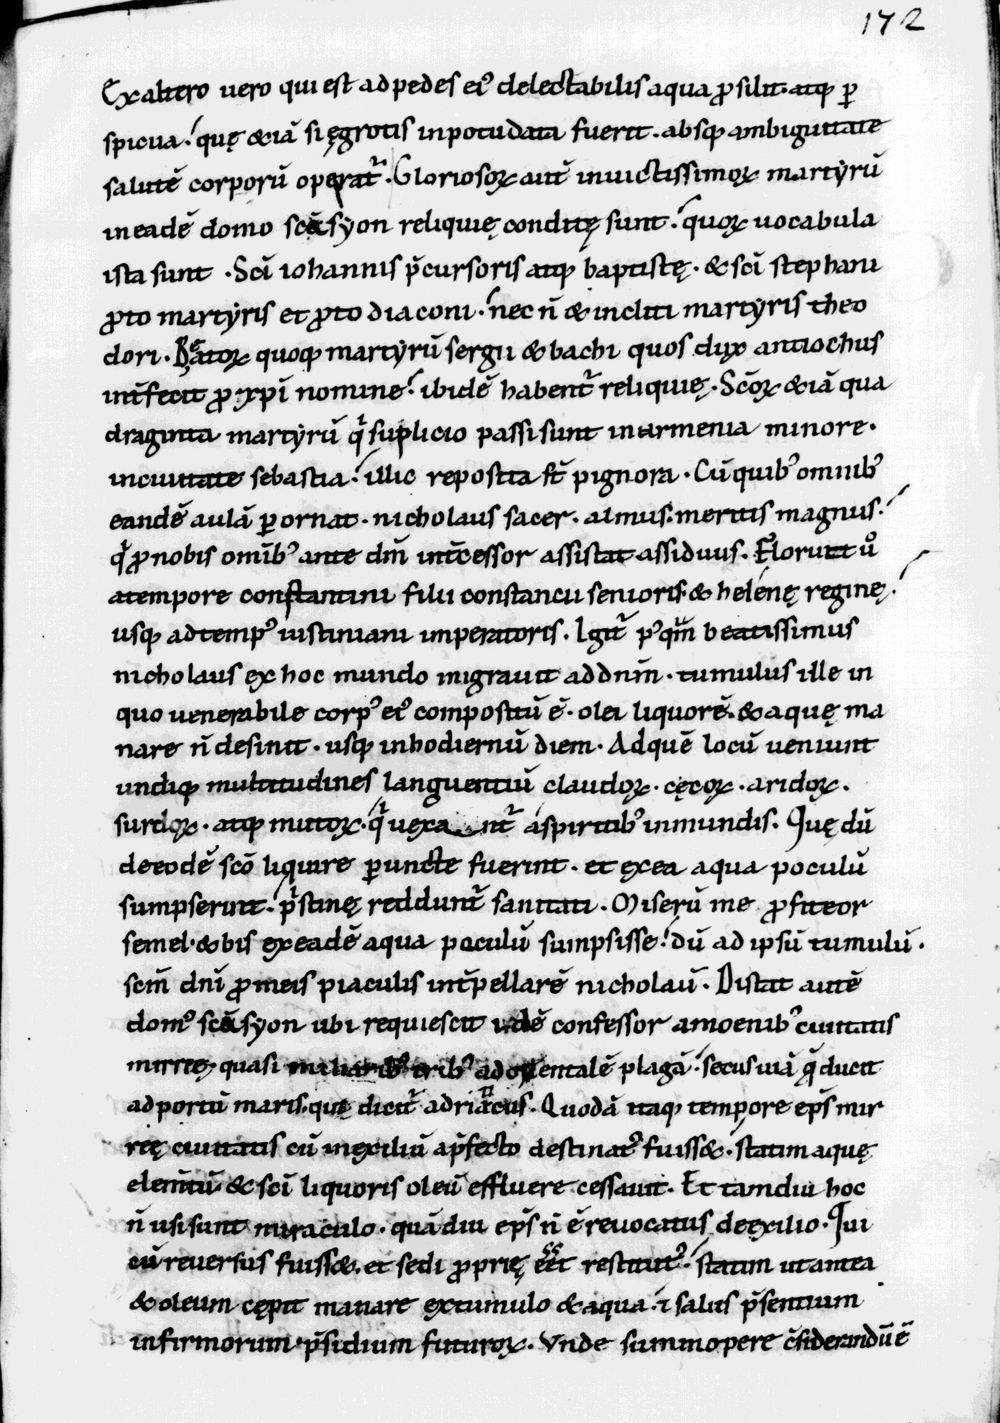 172
Ex altero vero qui est ad pedes ei᾿ delectabilis aqua ꝓsilit. atq; ꝑ
spicua. quę &iā si ęgrotis in potu data fuerit. absq; ambiguitate
salutē corporū operat᷑. Gloriosoꝝ aut̄ inuictissimoꝝ martyrū
in eadē domo scā syon reliquię conditę sunt. quoꝝ uocabula
ista sunt. Sc̄i iohannis p̄cursoris atq; baptistę. & sc̄i stephani
ꝓto martyris et ꝓto diaconi. nec n̄ & incliti martyris theo
dori. Beatoꝝ quoq; martyrū sergii & bachi quos dux antiochus
int̄fecit ꝓ xp̄i nomine. ibidē habent᷑ reliquię. Sc̄oꝝ &iā qua
draginta martyrū q̇ suplicio passi sunt in armenia minore.
in ciuitate sebastia. illic reposita st̄ pignora. Cū quib᾿ omnib᾿
eandē aulā ꝑornat. nicholaus sacer. almus. meritis magnus.
q̇ ꝓ nobis omīb᾿ ante dm̄ int̄cessor assistat assiduus. Floruit u᷎
a tempore constantini filii constancii senioris. & helenę reginę.
usq; ad temp᾿ iustiniani imperatoris. Igit᷑ p᾿qm̄ beatissimus
nicholaus ex hoc mundo migrauit ad dnm̄. tumulus ille in
quo uenerabile corp᾿ ei᾿ compositū ē. olei liquorē. & aquę ma
nare n̄ desinit. usq; in hodiernū diem. Ad quē locū ueniunt
undiq; multitudines languentiū claudoꝝ. cęcoꝝ. aridoꝝ.
surdoꝝ. atq; mutoꝝ. q̇ uexant᷑ a spiritib᾿ inmundis. Quę dū
de eodē scō liquore ꝑuncte fuerint. et ex ea aqua poculū
sumpserint. ṗstinę reddunt᷑ sanitati. Miserū me ꝓfiteor
semel. & bis ex eadē aqua poculū sumpsisse. dū ad ipsū tumulū.
scm̄ dnī ꝓ meis piaculis int̄pellarē nicholaū. Distat autē
dom᾿ scā syon ubi requiescit idē confessor amoenib᾿ ciuitatis
mirreę. quasi miliarib᾿ trib᾿ ad orientalē plagā. secus uiā q̄ ducit
ad portū maris. quę dicit᷑ adriacus. Quodā itaq; tempore ep̄s mir
reę ciuitatis cū in exiliū a p̄fecto destinat᾿ fuiss&. statim aquę
elem̄tū & sc̄i liquoris oleū effluere cessauit. Et tamdiu hoc
n̄ usi sunt miraculo. quādiu ep̄s n̄ ē reuocatus de exilio. Qui
cū reuersus fuiss&. et sedi ꝓprię eēt restitut᾿. statim ut antea
& oleum cępit manare ex tumulo & aqua. ī salus p̄sentium
infirmorum. p̄sidium futuroꝝ. Vnde summopere c̄siderandū ē